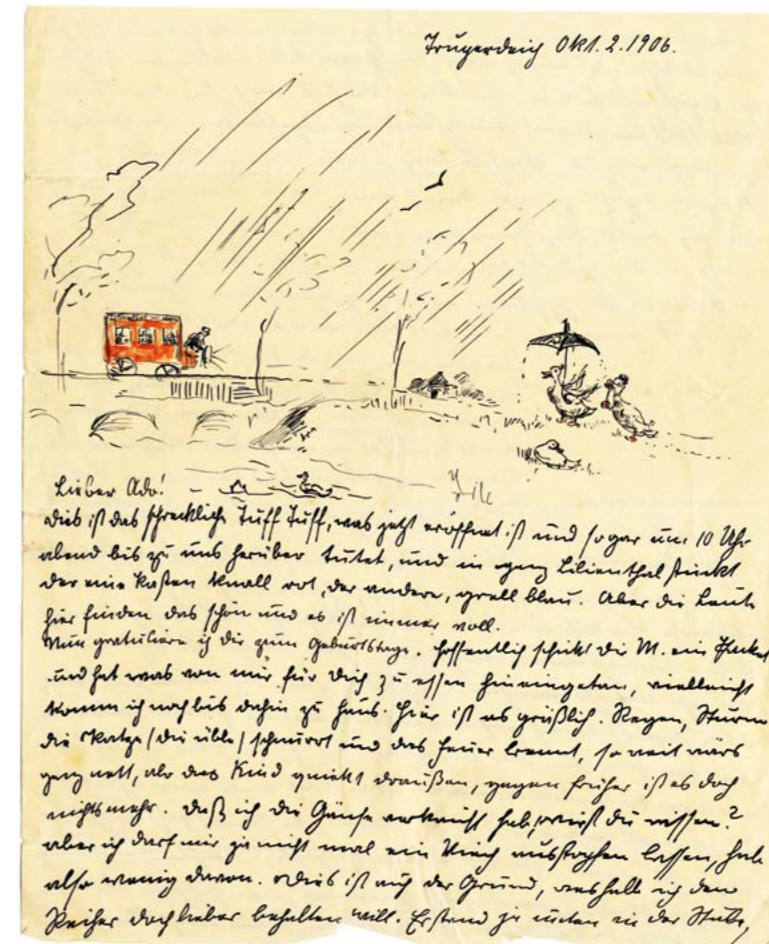 Truperdeich Okt. 2. 1906.
Lieber Ado!
Dies ist das schreckliche Tuff Tuff, was jetzt eröffnet ist und sogar um 10 Uhr
abend bis zu uns herüber tutet, und in ganz Lilienthal stinkt
der eine Kasten knall rot, der andere, grell blau. Aber die Leute
hier finden das schön und es ist immer voll.
Nun gratuliere ich dir zum Geburtstage. Hoffentlich schickt dir M. ein Packet
und hat was von mir für Dich zu essen hineingetan, vielleicht
komm ich noch bis dahin zu Haus. Hier ist es gräßlich. Regen, Sturm
die Katze (die üble) schnurrt und das Feuer brennt, so weit wärs
ganz nett, aber das Kind quiekt draußen, gegen früher ist es doch
nichts mehr. Daß ich die Gänse verkauft hab, weißt du wissen?
aber ich darf mir ja nicht mal ein Viech ausstopfen lassen, hab
also wenig davon. Dies ist auch der Grund, weshalb ich den
Reiher doch lieber behalten will. Er stand ja unten in der Stube,